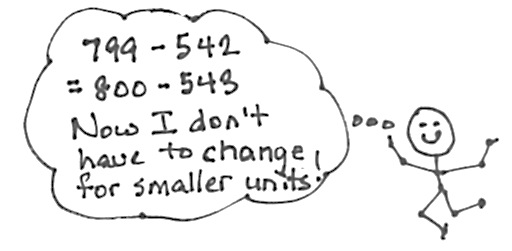 799 - 542
= 800 - 543
Now I don't
have to change
for smaller units!